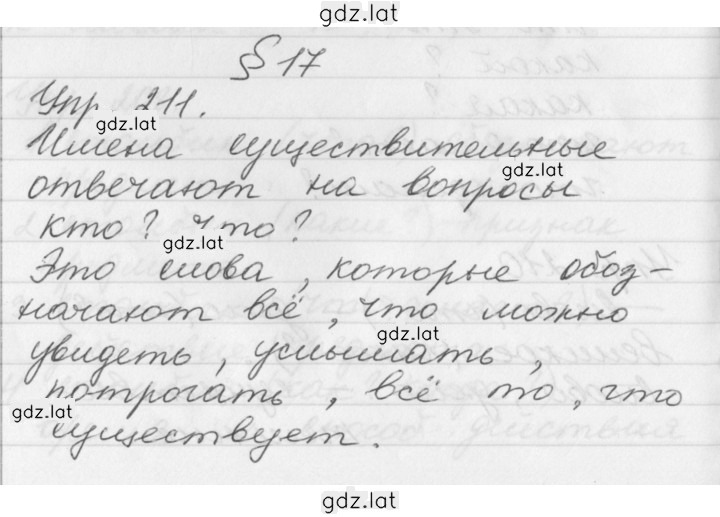 gdz.lat
§ 17
Упр. 211.
gdz.lat
Имена существительные
gdz.lat
отвечают на вопросы
кто? что?
gdz.lat
Это слова, которые обоз-
начают всё, что можно
gdz.lat
увидеть, услышать,
потрогать, всё то, что
gdz.lat
существует.
gdz.lat